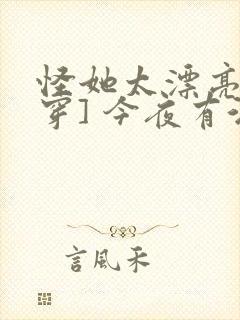 怪她太漂亮
穿]今夜有
言風禾